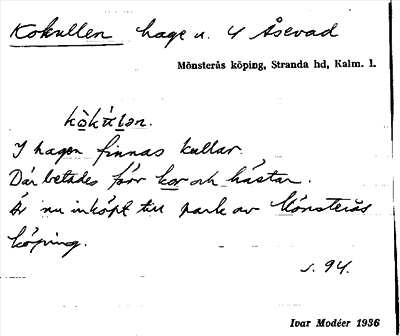 Kokullen hage u. 4 Åsevad
Mönsterås köping, Stranda hd, Kalm. l.
kòkúlən.
I hagen finnas kullar.
Där betades förr kor och hästar.
Är nu inköpt till park av Mönsterås
köping.
s. 94.
Ivar Modéer 1936